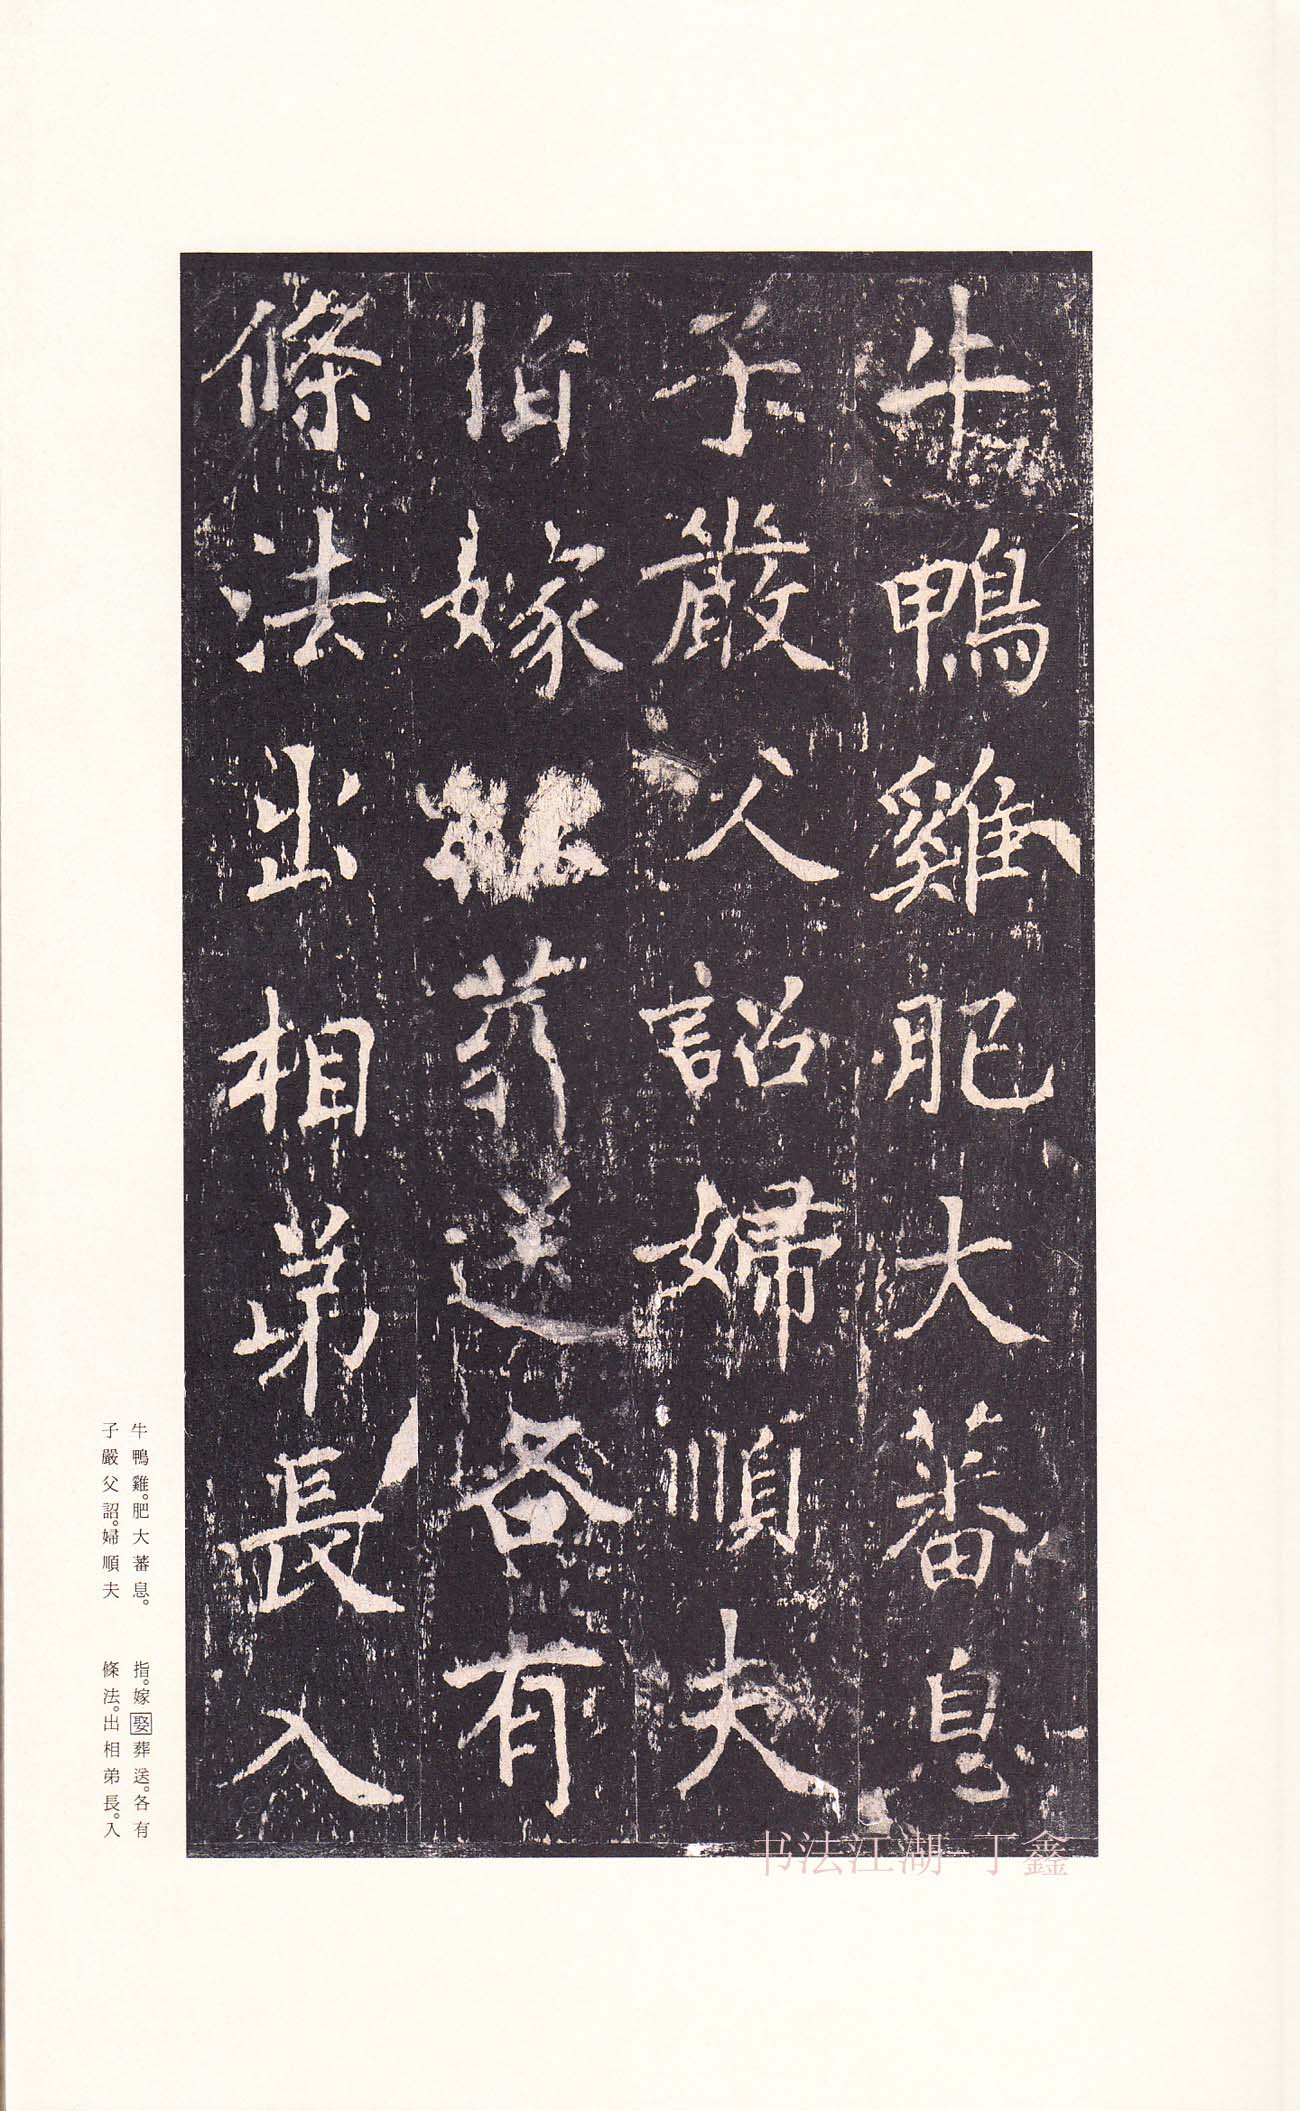 牛鴨雞肥大蕃息
子嚴父詔婦順夫
指嫁葬送各有
條法出相弟長入
牛鴨雞。肥大蕃息。
子嚴父詔。婦順夫
指。嫁娶葬送。各有
條法。出相弟長。入
书法江湖-丁鑫